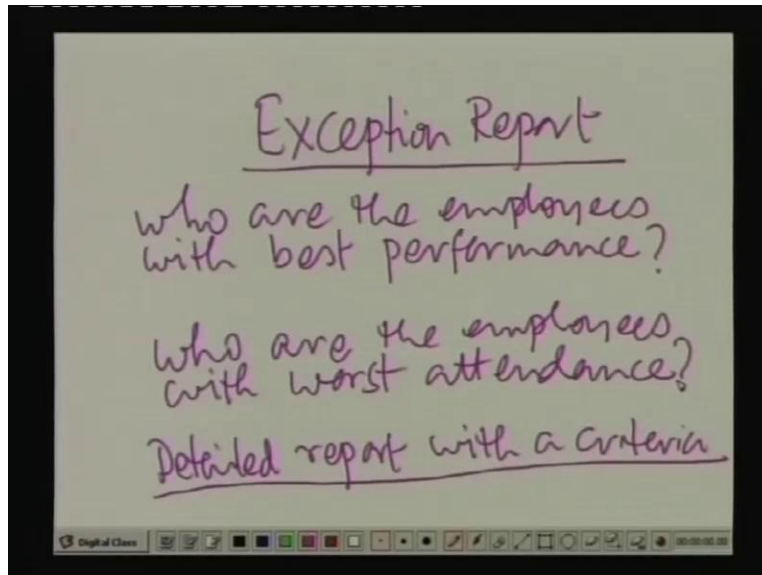 Exception Report
who are the employees
with best performance?
who are the employees
with worst attendance?
Detailed report with a criteria
Digital Class
00:00:00.00